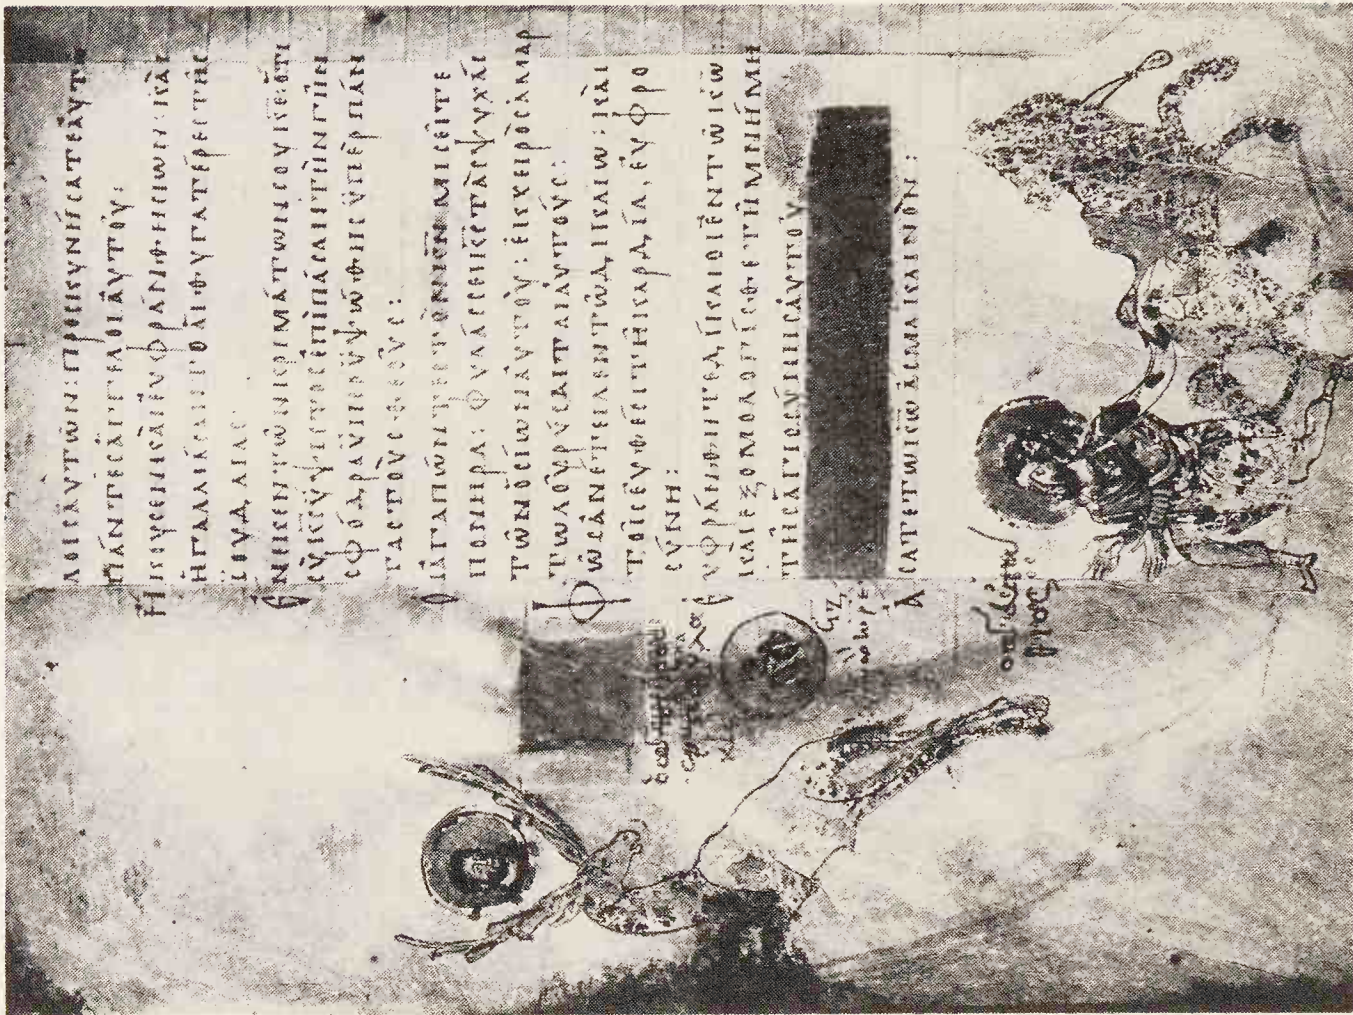 ΛΟΙΣ ΑΥΤΩΝ: ΠΡΟΣΚΥΝΗΣΑΤΕ ΑΥΤΩ
ΠΑΝΤΕΣ ΑΓΓΕΛΟΙ ΑΥΤΟΥ:
ΗΚΟΥΣΕΝ ΚΑΙ ΕΥΦΡΑΝΘΗ ΣΙΩΝ: ΚΑΙ
ΗΓΑΛΛΙΑΣΑΝΤΟ ΑΙ ΘΥΓΑΤΕΡΕΣ ΤΗΣ
ΙΟΥΔΑΙΑΣ:
ΕΝΕΚΕΝ ΤΩΝ ΚΡΙΜΑΤΩΝ ΣΟΥ ΚΕ ΟΤΙ
ΣΥ ΚΣ ΥΨΙΣΤΟΣ ΕΠΙ ΠΑΣΑΝ ΤΗΝ ΓΗΝ
ΣΦΟΔΡΑ ΥΠΕΡΥΨΩΘΗΣ ΥΠΕΡ ΠΑΝ
ΤΑΣ ΤΟΥΣ ΘΕΟΥΣ:
ΟΙ ΑΓΑΠΩΝΤΕΣ ΤΟΝ ΚΝ ΜΙΣΕΙΤΕ
ΠΟΝΗΡΑ: ΦΥΛΑΣΣΕΙ ΚΣ ΤΑΣ ΨΥΧΑΣ
ΤΩΝ ΟΣΙΩΝ ΑΥΤΟΥ: ΕΚ ΧΕΙΡΟΣ ΑΜΑΡ
ΤΩΛΟΥ ΡΥΣΕΤΑΙ ΑΥΤΟΥΣ:
ΦΩΣ ΑΝΕΤΕΙΛΕΝ ΤΩ ΔΙΚΑΙΩ: ΚΑΙ
ΤΟΙΣ ΕΥΘΕΣΙ ΤΗ ΚΑΡΔΙΑ, ΕΥΦΡΟ
ΣΥΝΗ:
ΕΥΦΡΑΝΘΗΤΕ, ΔΙΚΑΙΟΙ ΕΝ ΤΩ ΚΩ:
ΚΑΙ ΕΞΟΜΟΛΟΓΕΙΣΘΕ ΤΗ ΜΝΗΜΗ
ΤΗΣ ΑΓΙΟΣΥΝΗΣ ΑΥΤΟΥ
ΑΣΑΤΕ ΤΩ ΚΩ ΑΣΜΑ ΚΑΙΝΟΝ: